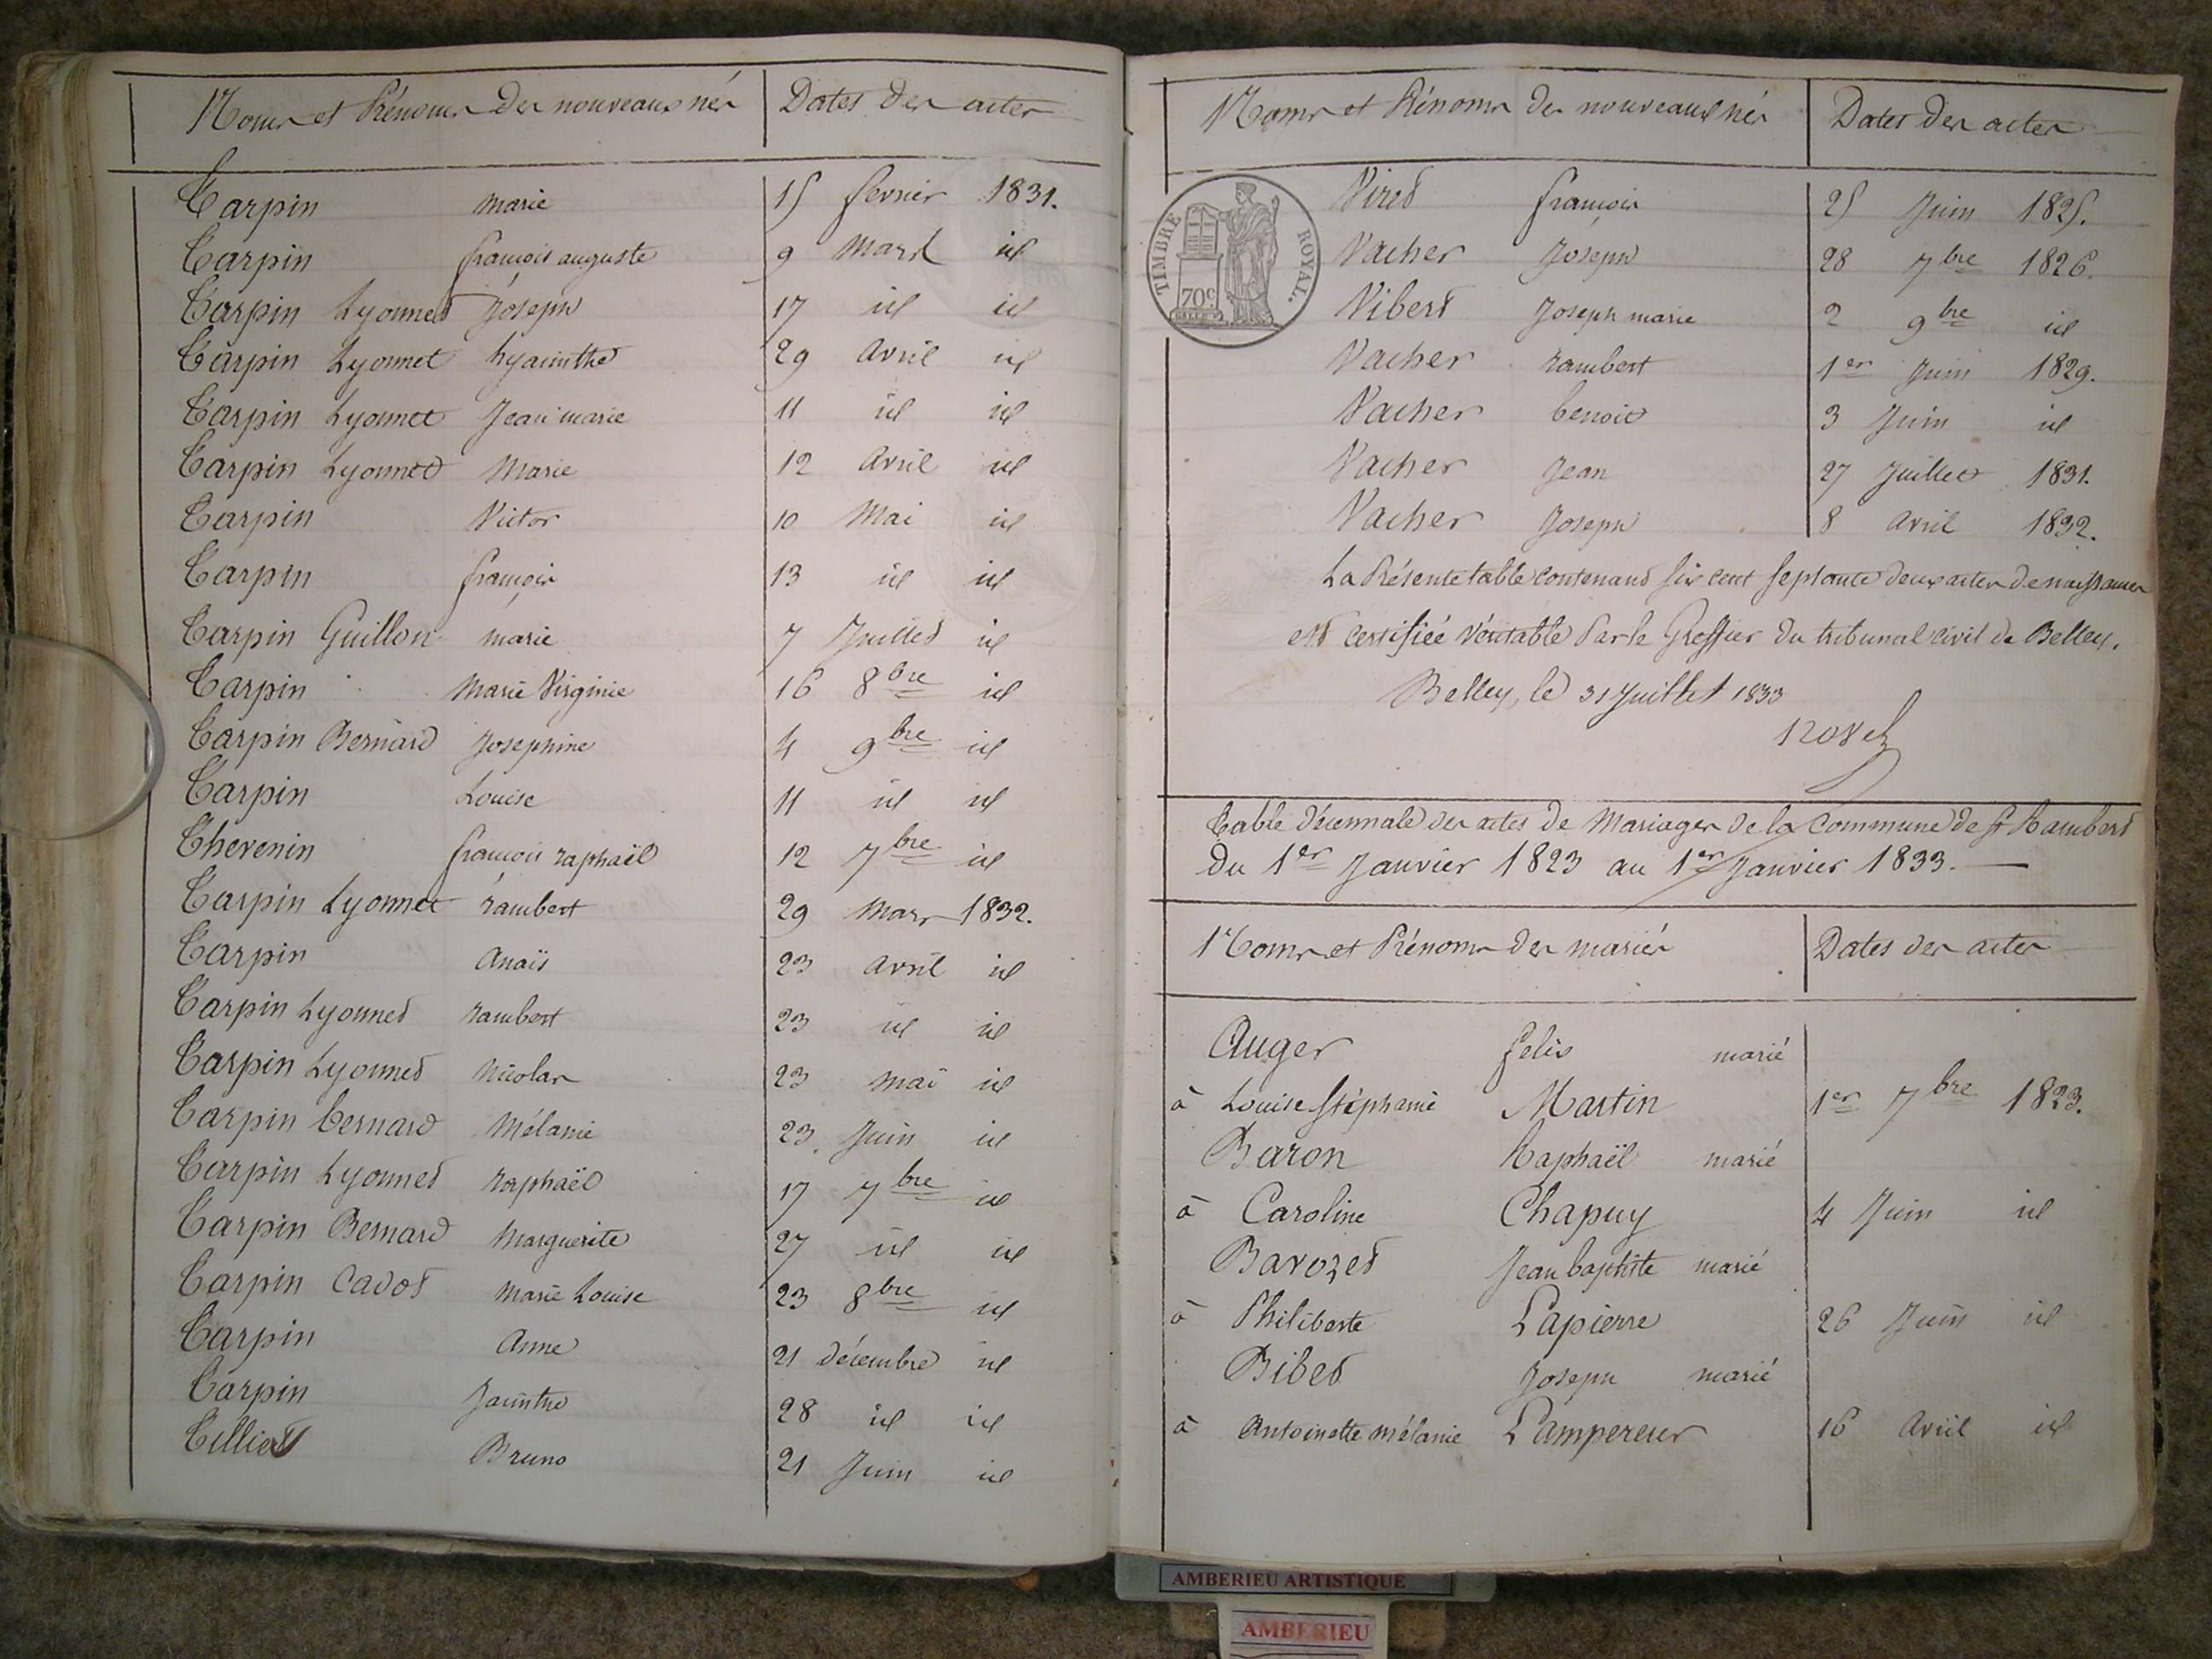 Noms et Prénoms des nouveaux nés Dates des actes
Tarpin marie 15 fevrier 1831.
Tarpin françois auguste 9 Mars id
Tarpin Lyonnet Joseph 17 id id
Tarpin Lyonnet hyacinthe 29 Avril id
Tarpin Lyonnet Jean marie 11 id id
Tarpin Lyonnet Marie 12 Avril id
Tarpin Victor 10 Mai id
Tarpin françois 13 id id
Tarpin Guillon marie 7 Juillet id
Tarpin Marie Virginie 16 8bre id
Tarpin Bernard Josephine 4 9bre id
Tarpin Louise 11 id id
Thevenin françois raphaël 12 7bre id
Tarpin Lyonnet rambert 29 Mars 1832.
Tarpin Anaïs 23 avril id
Tarpin Lyonnet rambert 23 id id
Tarpin Lyonnet Nicolas 23 mai id
Tarpin bernard Mélanie 23 Juin id
Tarpin Lyonnet raphaël 17 7bre id
Tarpin Bernard Marguerite 27 id id
Tarpin Cadot Marie Louise 23 8bre id
Tarpin Anne 21 décembre id
Tarpin Jacinthe 28 id id
Tilliet Bruno 21 Juin id
Noms et Prénoms des nouveaux nés Dates des actes
TIMBRE ROYAL.
70c
Viret françois 25 Juin 1825.
Vacher Joseph 28 7bre 1826.
Vibert Joseph marie 2 9bre id
Vacher rambert 1er Juin 1829.
Vacher benoit 3 Juin id
Vacher Jean 27 Juillet 1831.
Vacher Joseph 8 avril 1832.
La Présente table contenant six cent septante deux actes de naissances
est certifiée véritable Par le Greffier du tribunal civil de Belley.
Belley, le 31 Juillet 1833
Table décennale des actes de Mariages de la Commune de St Rambert
Du 1er Janvier 1823 au 1er Janvier 1833.
Noms et Prénoms des mariés Dates des actes
Auger felix marié
à Louise Stéphanie Martin 1er 7bre 1823.
Baron Raphaël marié
à Caroline Chapuy 4 Juin id
Bavozet Jean baptiste marié
à Philiberte Lapierre 26 Juin id
Bibet Joseph marié
à Antoinette mélanie Lampereur 16 Avril id
AMBERIEU ARTISTIQUE
AMBERIEU